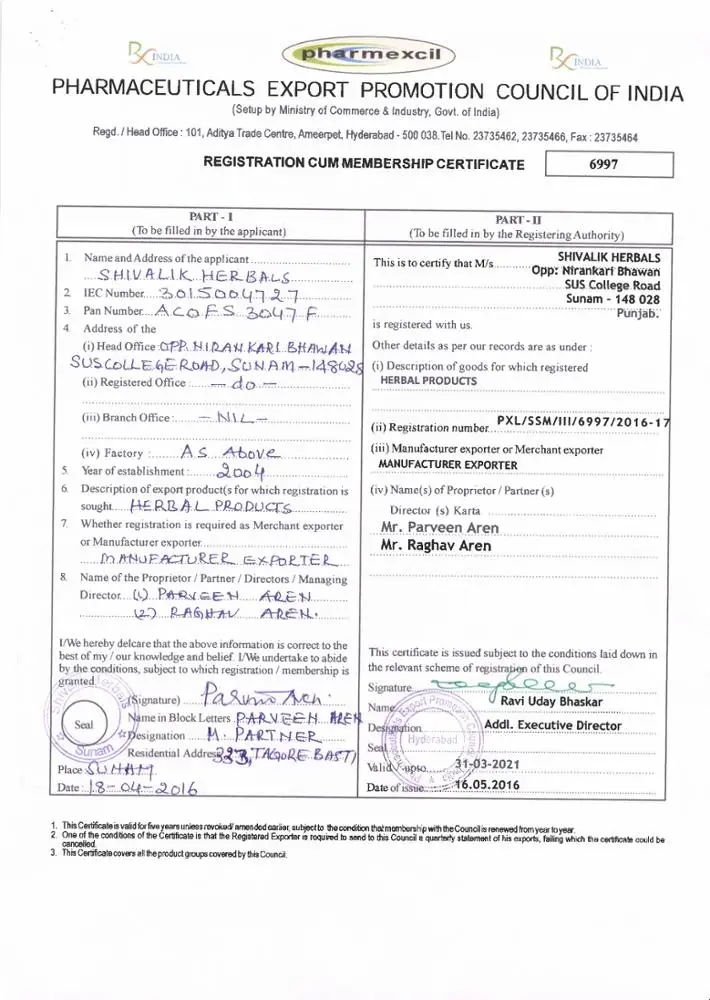 Rx INDIA
pharmexcil
Rx INDIA
PHARMACEUTICALS EXPORT PROMOTION COUNCIL OF INDIA
(Setup by Ministry of Commerce & Industry, Govt. of India)
Regd. / Head Office : 101, Aditya Trade Centre, Ameerpet, Hyderabad - 500 038. Tel No. 23735462, 23735466, Fax : 23735464
REGISTRATION CUM MEMBERSHIP CERTIFICATE
6997
PART - I
(To be filled in by the applicant)
1. Name and Address of the applicant
SHIVALIK HERBALS
2. IEC Number 3015004727
3. Pan Number ACOFS 3047 F
4. Address of the
(i) Head Office : OPP. NIRANKARI BHAWAN
SUS COLLEGE ROAD, SUNAM - 148028
(ii) Registered Office : - do -
(iii) Branch Office : - NIL -
(iv) Factory : AS Above
5. Year of establishment : 2004
6. Description of export product(s for which registration is
sought HERBAL PRODUCTS
7. Whether registration is required as Merchant exporter
or Manufacturer exporter
MANUFACTURER EXPORTER
8. Name of the Proprietor / Partner / Directors / Managing
Director (1) PARVEEN AREN
(2) RAGHAV AREN.
I/We hereby delcare that the above information is correct to the
best of my / our knowledge and belief. I/We undertake to abide
by the conditions, subject to which registration / membership is
granted.
(Signature) Parveen Aren
Seal
Name in Block Letters PARVEEN AREN
Designation M. PARTNER
Residential Address 323, TAGORE BASTI
Sunam
Place SUNAM
Date : 18-04-2016
PART - II
(To be filled in by the Registering Authority)
This is to certify that M/s. SHIVALIK HERBALS
Opp: Nirankari Bhawan
SUS College Road
Sunam - 148 028
Punjab.
is registered with us.
Other details as per our records are as under :
(i) Description of goods for which registered
HERBAL PRODUCTS
(ii) Registration number PXL/SSM/III/6997/2016-17
(iii) Manufacturer exporter or Merchant exporter
MANUFACTURER EXPORTER
(iv) Name(s) of Proprietor / Partner (s)
Director (s) Karta
Mr. Parveen Aren
Mr. Raghav Aren
This certificate is issued subject to the conditions laid down in
the relevant scheme of registration of this Council.
Signature
Name Ravi Uday Bhaskar
Designation Addl. Executive Director
Hyderabad
Seal
Valid upto 31-03-2021
Date of issue 16.05.2016
1. This Certificate is valid for five years unless revoked/ amended earlier, subject to the condition that membership with the Council is renewed from year to year.
2. One of the conditions of the Certificate is that the Registered Exporter is required to send to this Council a quarterly statement of his exports, failing which the certificate could be
cancelled.
3. This Certificate covers all the product groups covered by this Council.